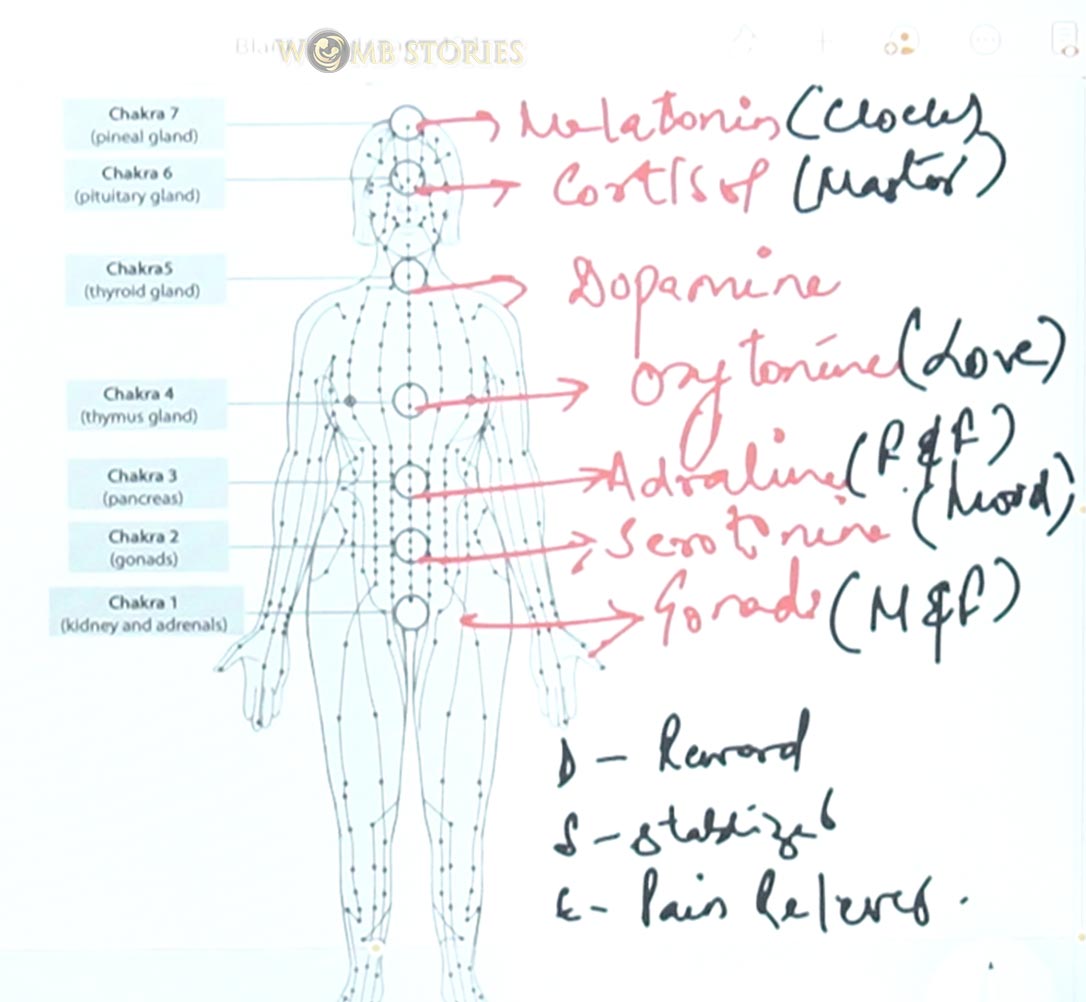 WOMB STORIES
Chakra 7
(pineal gland)
Melatonin (Clock)
Chakra 6
(pituitary gland)
Cortisol (Master)
Chakra5
(thyroid gland)
Dopamine
Chakra 4
(thymus gland)
Oxytonine (Love)
Chakra 3
(pancreas)
Adraline (F & F)
Chakra 2
(gonads)
Serotonine (Mood)
Chakra 1
(kidney and adrenals)
Gonads (M & F)
D - Reward
S - Stablizer
E - Pain Reliever.